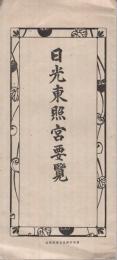 日光東照宮要覧